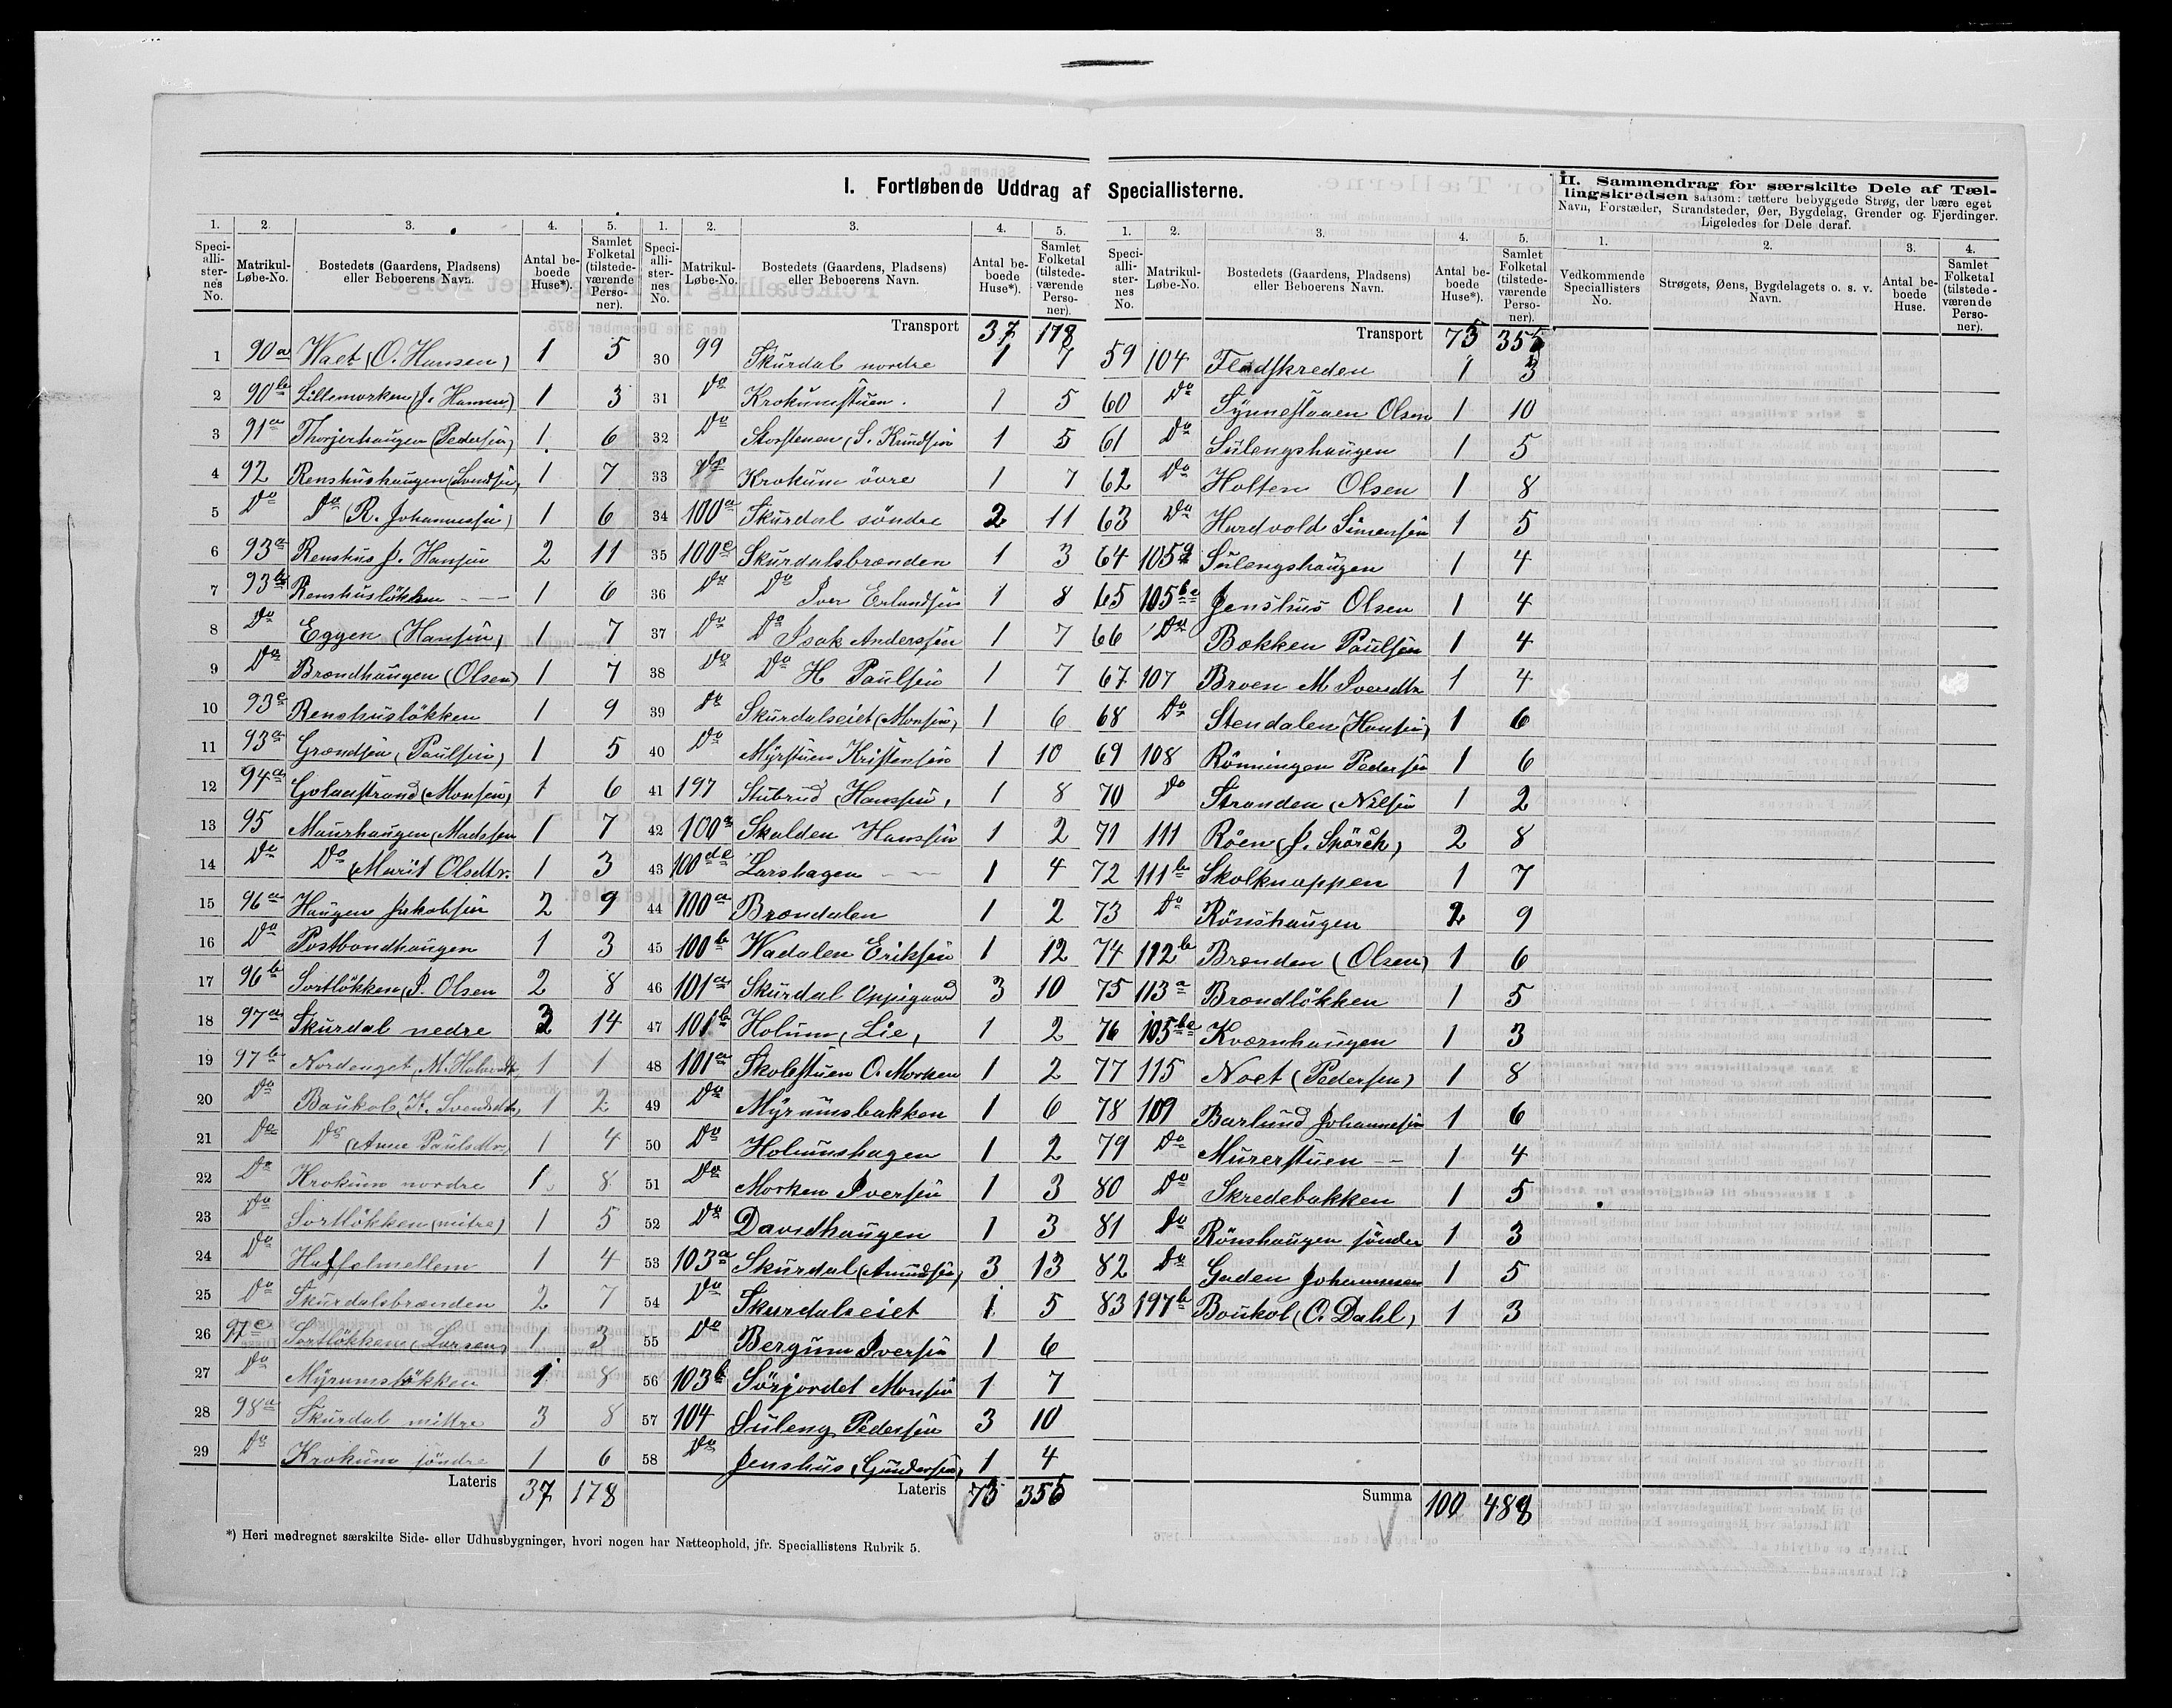 I. Fortløbende Uddrag af Speciallisterne.
II. Sammendrag for særskilte Dele af Tæl-
lingskredsen saasom: tættere bebyggede Strøg, der bære eget
Navn, Forstæder, Strandsteder, Øer, Bygdelag, Grender og Fjerdinger.
Ligeledes for Dele deraf.
1. 2. 3. 4. 5.
Speci-alli-ster-nes No. Matrikul-Løbe-No. Bostedets (Gaardens, Pladsens) eller Beboerens Navn. Antal be-boede Huse*). Samlet Folketal (tilstede-værende Perso-ner).
1 90a Waet (O. Hansen) 1 5
2 90b Lillemorken (J. Hansen) 1 3
3 91a Thorjerhaugen (Pedersen) 1 6
4 92 Renshushaugen (Svendsen) 1 7
5 Do Do (R. Johannessen) 1 6
6 93a Renshus J. Hansen 2 11
7 93b Renshusløkken 1 6
8 Do Eggen (Hansen) 1 7
9 Do Brændhaugen (Olsen) 1 7
10 93c Renshusløkken 1 9
11 93a Grændsen (Paulsen) 1 5
12 94a (Monsen) 1 6
13 95 Maurhaugen (Madssen 1 7
14 Do Do (Marit Olsdtr. 1 3
15 96a Haugen Jakobsen 2 9
16 Do Postbondhaugen 1 3
17 96b Sortløkken, P. Olsen 2 8
18 97a Skurdal nedre 3 14
19 97b Nordenget (M. 1 1
20 Do Baukol (K. 1 2
21 Do Do (Anne Paulsdtr) 1 4
22 Do Krokum nordre 1 8
23 Do Sortløkken (mitre) 1 5
24 Do 1 4
25 Do Skurdalsbrænden 2 7
26 97c Sortløkken (Larsen) 1 3
27 Do Myrumsløkken 1 8
28 98a Skurdal mittre 3 8
29 Do Krokum søndre 1 6
Lateris 37 178
1. 2. 3. 4. 5.
Speci-alli-ster-nes No. Matrikul-Løbe-No. Bostedets (Gaardens, Pladsens) eller Beboerens Navn. Antal be-boede Huse*). Samlet Folketal (tilstede-værende Perso-ner).
Transport 37 178
30 99 Skurdal nordre 1 7
31 Do Krokumstuen. 1 5
32 Do Storstenen (S. Knudsen 1 5
33 Do Krokum övre 1 7
34 100a Skurdal søndre 2 11
35 100c Skurdalsbrænden 1 3
36 Do Do Iver Erlandsen 1 8
37 Do Do Isak Anderssen 1 7
38 Do Do H Paulsen 1 7
39 Do Skurdalseiet (Monsen) 1 6
40 Do Myrstuen Kristensen 1 10
41 197 Stubrud (Hanssen) 1 8
42 100a Skalden Hanssen 1 2
43 100de Larshagen 1 4
44 100a Brændalen 1 2
45 100b Wadalen Eriksen 1 12
46 101a Skurdal Oppigaard 3 10
47 101b Holum (Lie) 1 2
48 101a Skolestuen O. Morken 1 2
49 Do Myrumsbakken 1 6
50 Do Holumshagen 1 2
51 Do Morken Iversen 1 3
52 Do Davidhaugen 1 3
53 103a Skurdal (Amundsen) 3 13
54 Do Skurdalseiet 1 5
55 Do Bergum Iversen 1 6
56 103b Sörjordet Monsen 1 7
57 104 Suleng Pedersen 3 10
58 Do Jenshus (Gundersen) 1 4
Lateris 73 355
1. 2. 3. 4. 5.
Speci-alli-ster-nes No. Matrikul-Løbe-No. Bostedets (Gaardens, Pladsens) eller Beboerens Navn. Antal be-boede Huse*). Samlet Folketal (tilstede-værende Perso-ner).
Transport 73 355
59 104 Flodskreden 1 3
60 Do Olsen 1 10
61 Do Sulengshaugen 1 5
62 Do Holten Olsen 1 8
63 Do Hardvold Simensen 1 5
64 105a Sulengshaugen 1 4
65 105bc Jenshus Olsen 1 4
66 Do Bakken Paulsen 1 4
67 107 Broen M Iversdtr 1 4
68 Do Stendalen (Hansen) 1 6
69 108 Rönningen Pedersen 1 6
70 Do Stranden (Nilsen 1 2
71 111 Röen (J. Spörck) 2 8
72 111b Skolknappen 1 7
73 Do Rönshaugen 2 9
74 112b Brænden (Olsen) 1 6
75 113a Brændløkken 1 5
76 105bc Kværnhaugen 1 3
77 115 Noet (Pedersen) 1 8
78 109 Barlund Johannesen 1 6
79 Do Murerstuen 1 4
80 Do Skredebakken 1 5
81 Do Rönshaugen söndre 1 3
82 Do Gaden Johannesen 1 5
83 197b Boukol (O. Dahl) 1 3
Summa 100 488
1. 2. 3. 4.
Vedkommende Speciallisters No. Strøgets, Øens, Bygdelagets o. s. v. Navn. Antal be-boede Huse. Samlet Folketal (tilstede-værende Perso-ner).
*) Heri medregnet særskilte Side- eller Udhusbygninger, hvori nogen har Natteophold, jfr. Speciallistens Rubrik 5.